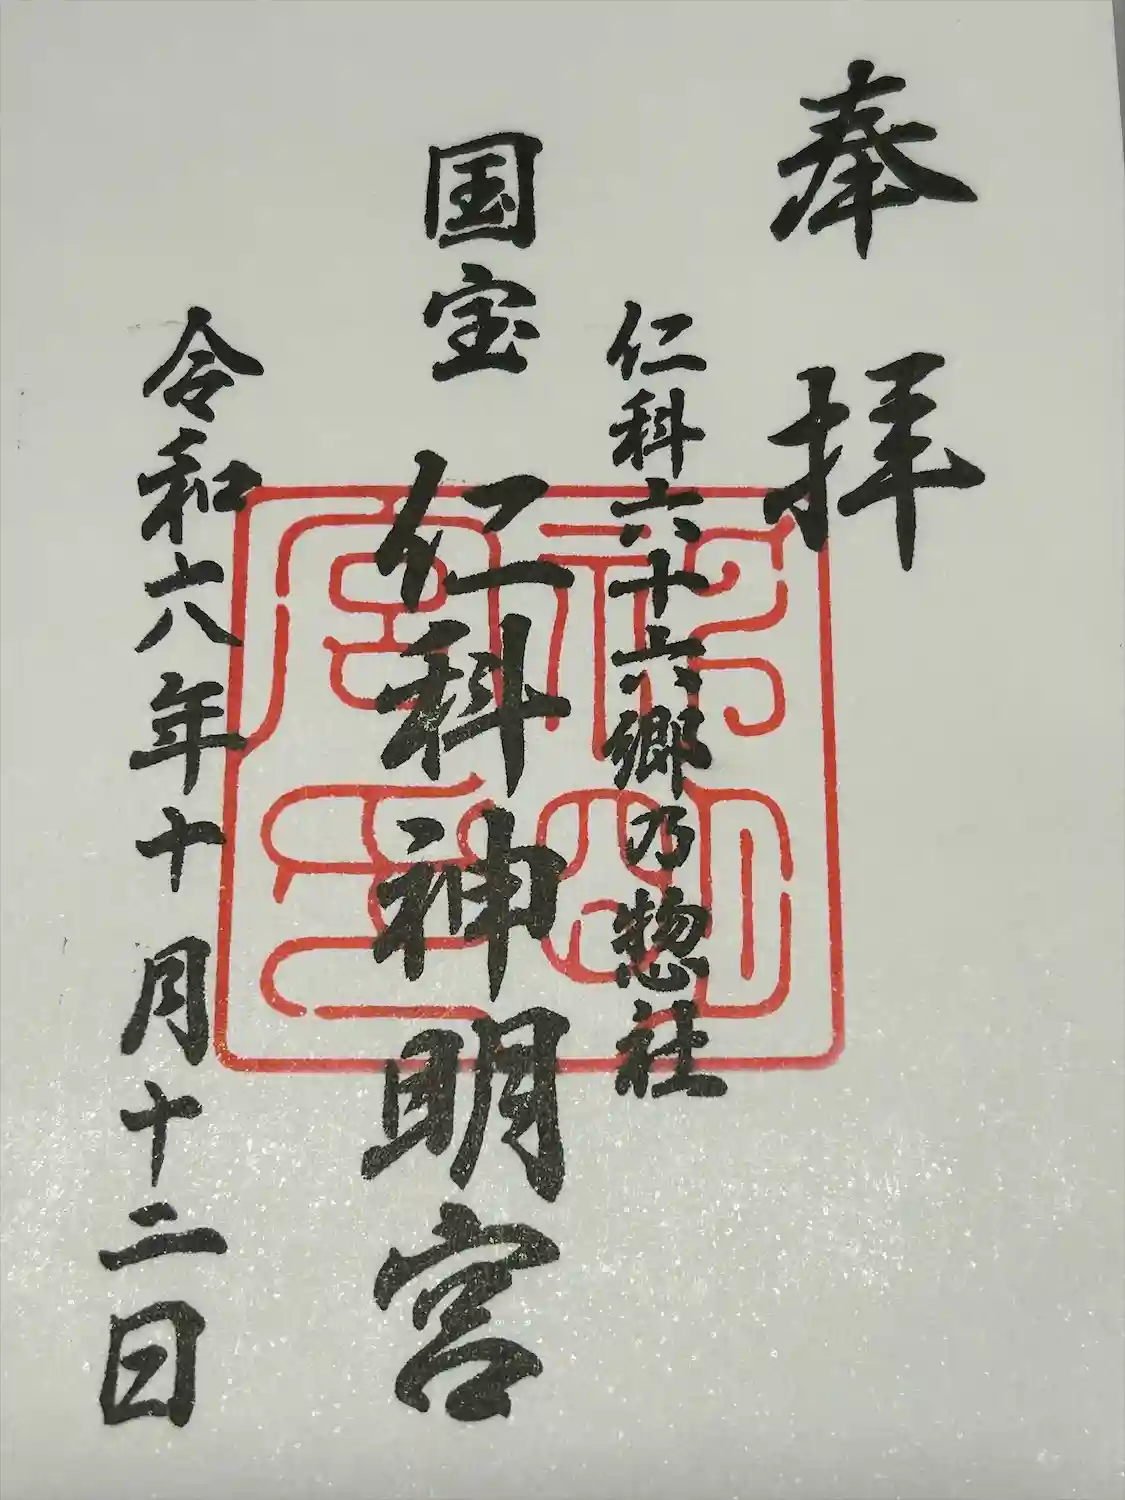 奉拝
仁科六十六郷乃惣社
国宝 仁科神明宮
令和六年十月十二日
神明宮印